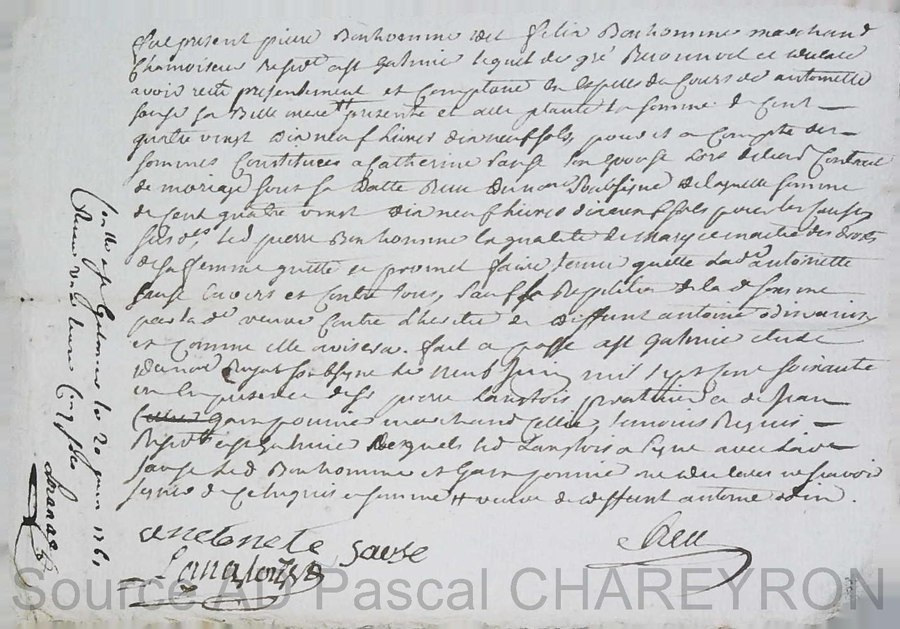 fut present pierre Bonhomme dit felix Bonhomme marchand
Chamoiseur Resid^t a S^t Galmier lequel de gré Reconnoit et declare
avoir reçu presentement et Comptant en Especes de Cours de antoinette
sause sa Belle mere †† presente et acceptante la somme de Cent
quatre vingt dix neuf livres dix neuf sols, pour et a Compte des
sommes Constituées a Catherine sause son epouse lors de leur Contract
de mariage sous sa datte Reçu du no^re soussigne de laquelle somme
de Cent quatre vingt dix neuf livres dix neuf sols pour les causes
susd^es led pierre Bonhomme en qualité de mary et maitre des droits
de sa femme quitte et promet faire tenir quitte lad^e antoinette
sause Envers et Contre tous, sauf Repetition de la d^e somme
par la d^e veuve Contre l'heritie de deffunt antoine
et Comme elle avisera. fait a passé a S^t Galmier etude
du no^re Royal soussigné le neuf juin mil sept cent soixante
un En presence de S^r pierre Langlois praticien et de jean
marchand Cellier, temoins Requis
Resid^t a S^t galmier desquels led Langlois a signe avec lad^e
sause led Bonhomme et ont declaré ne sçavoir
signer de Ce Enquis et sommé †† veuve de deffunt antoine
antonete sause
Langlois
Reu
Conllé a S^t Galmier le 20 juin 1761
Reçu
Source AD Pascal CHAREYRON